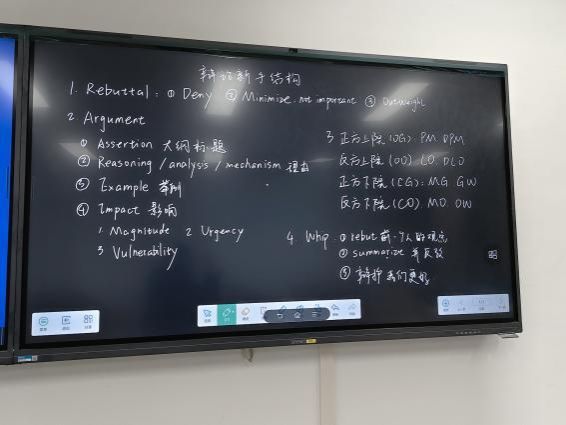 辩论新手结构
1. Rebuttal: ① Deny ② Minimize: not important ③ Outweigh
2 Argument
① Assertion 大纲标题
② Reasoning / analysis / mechanism 理由
③ Example 举例
④ Impact 影响
1. Magnitude 2 Urgency
3 Vulnerability
3 正方上院 (OG): PM. DPM
反方上院 (OO) LO. DLO
正方下院 (CG): MG. GW
反方下院 (CO) MO. OW
4. Whip: ① rebut 前一个人的观点
② summarize 并反驳
③ 辩护我们更好